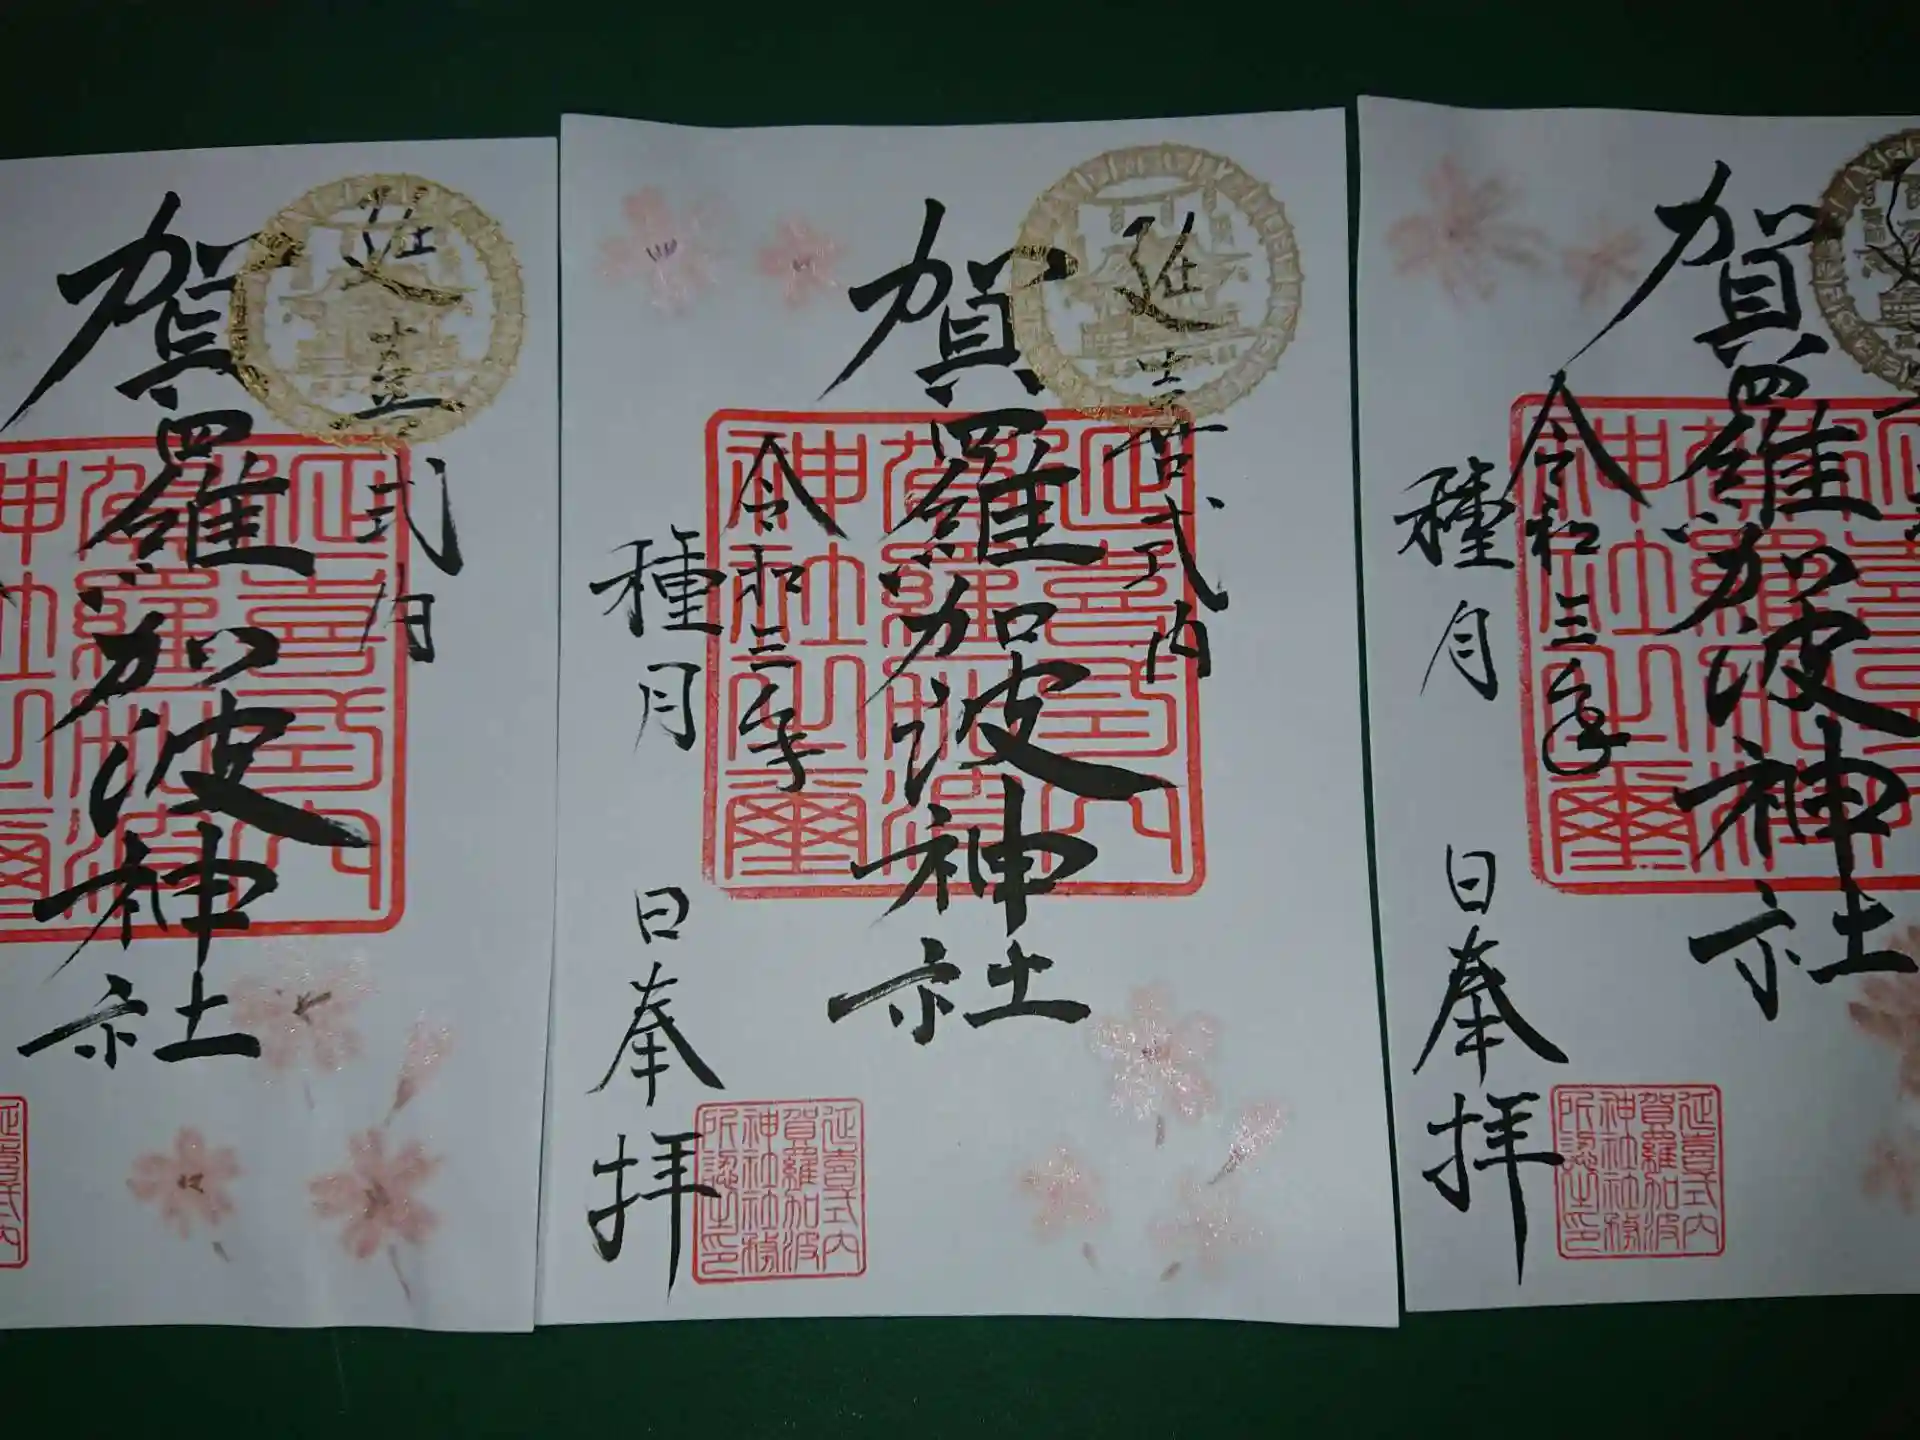 延喜式内
賀羅加波神社
延喜式内
賀羅加波
神社之璽
令和三年
種月
日奉拝
延喜式内
賀羅加波
神社社務
所認之印
延喜式内
賀羅加波神社
令和三年
種月
日奉拝
延喜式内
賀羅加波
神社社務
所認之印
式内
賀羅加波神社